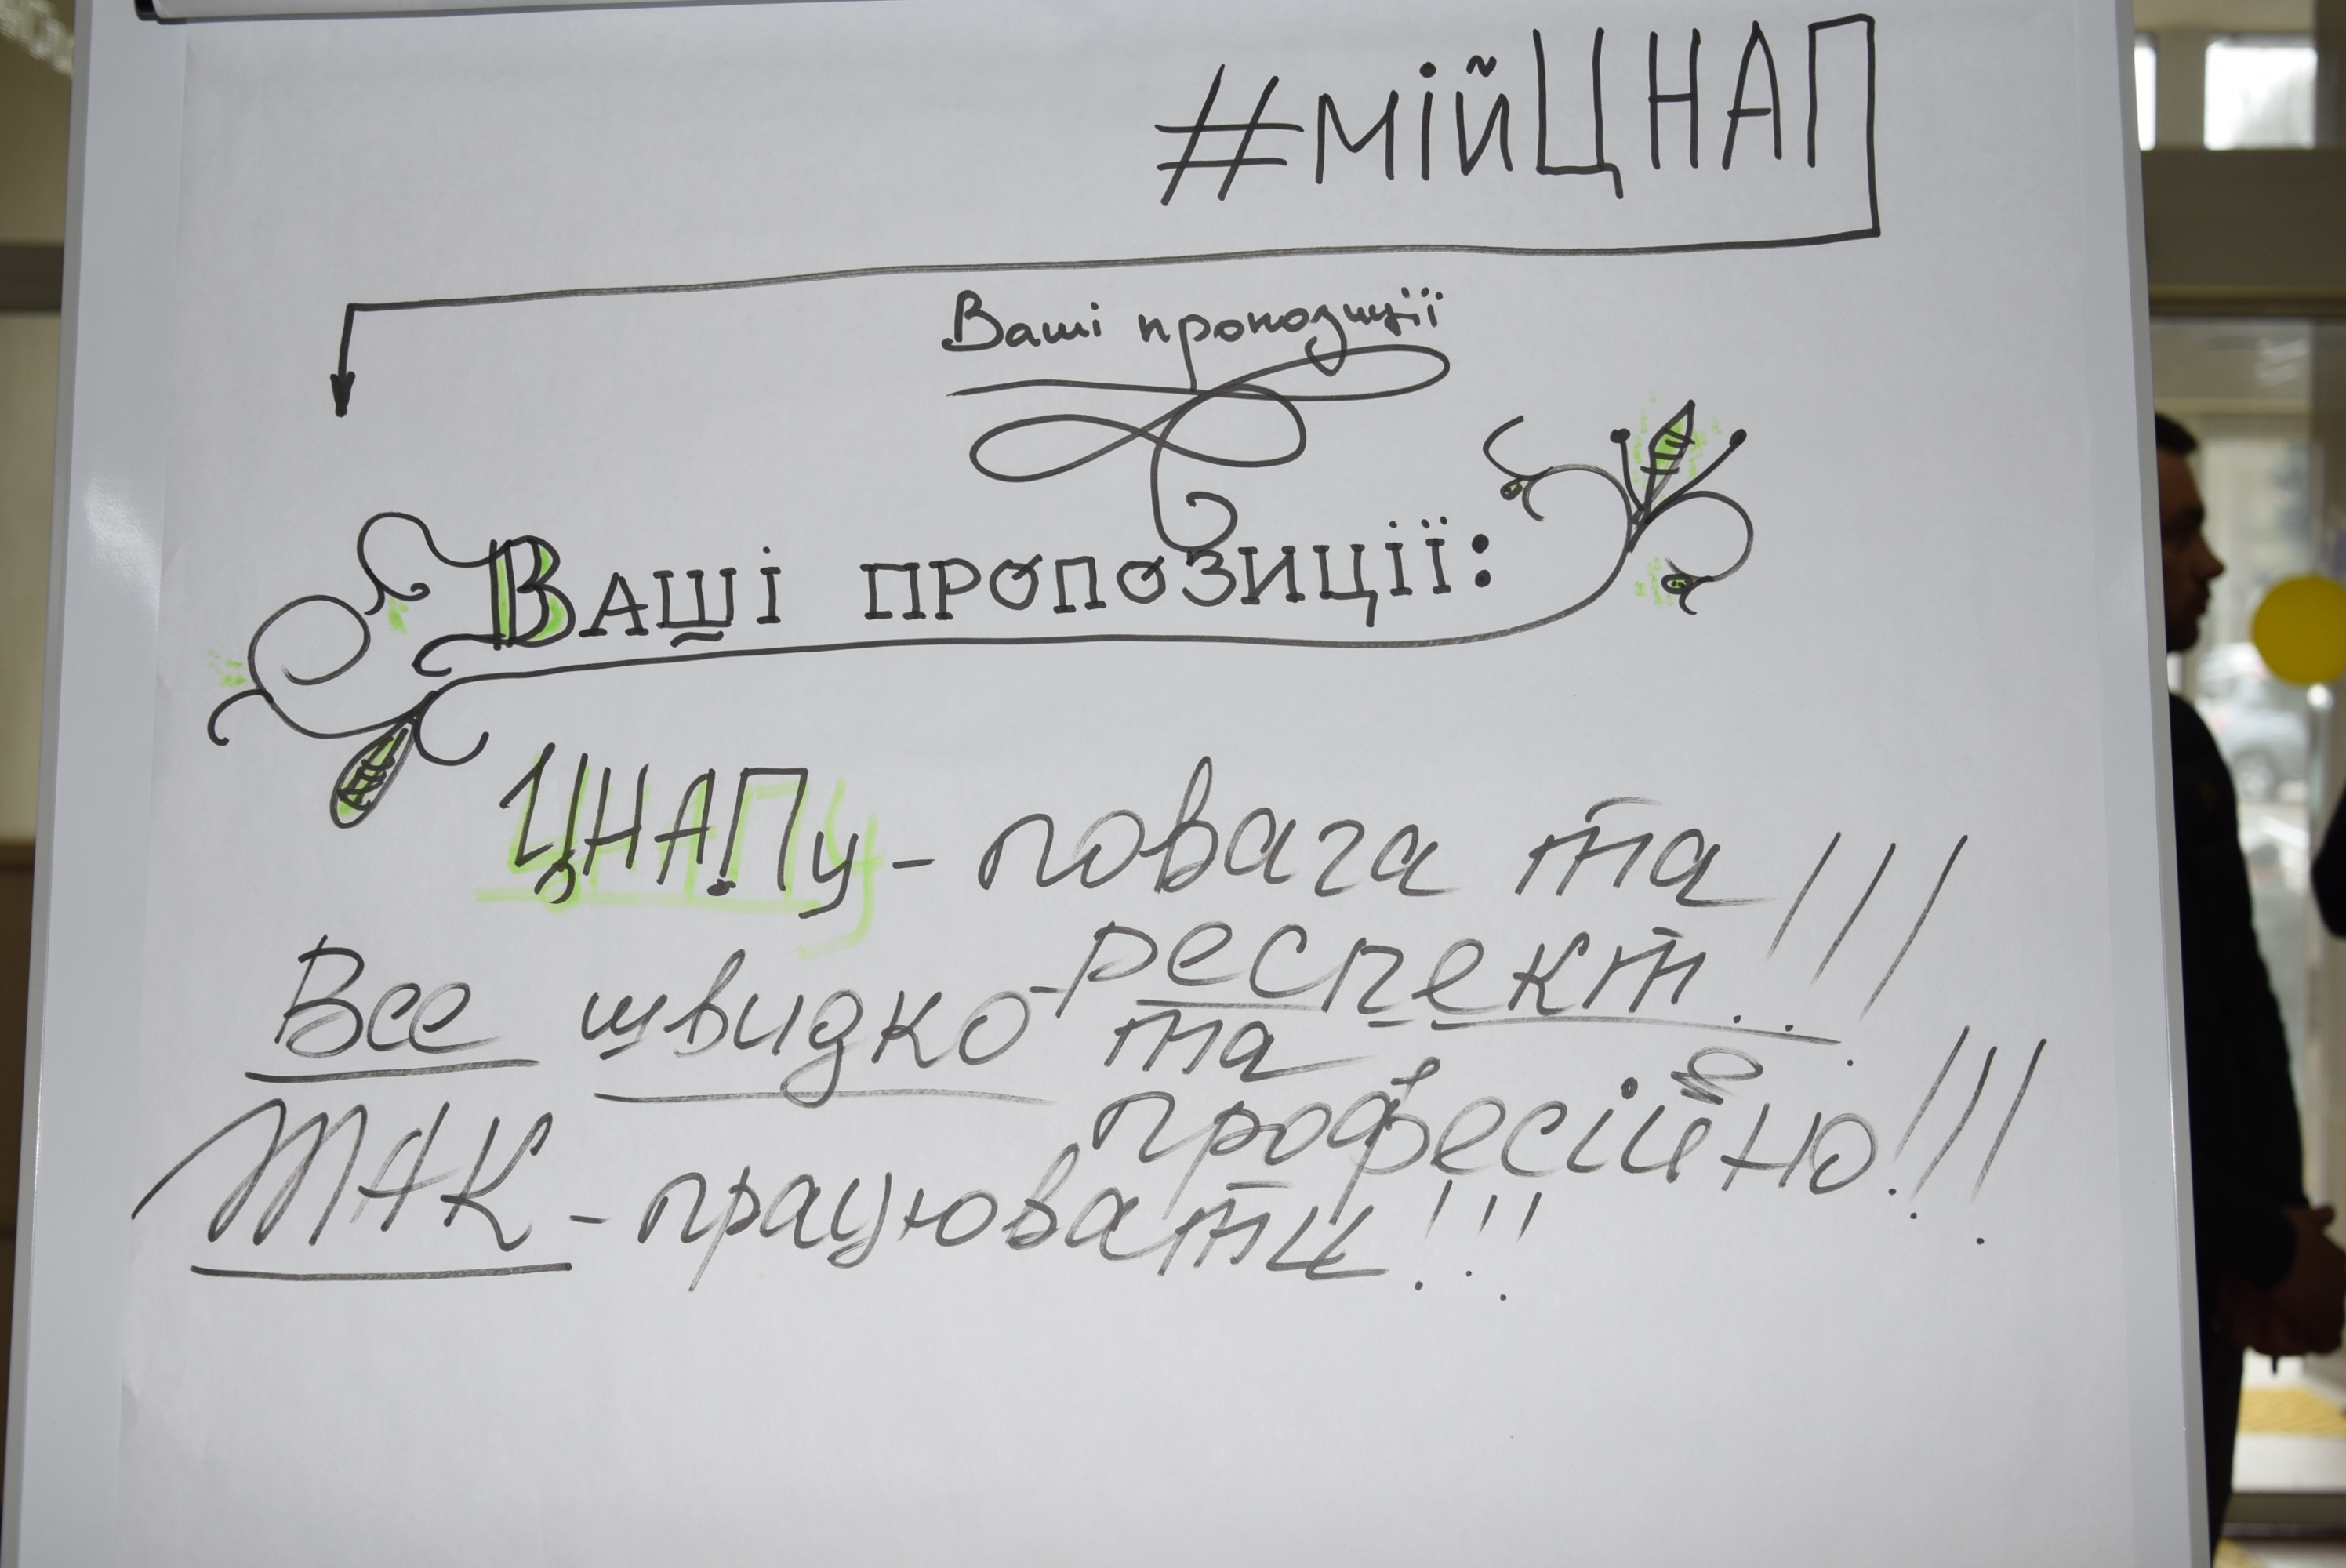 #мійЦНАП
Ваші пропозиції
Ваші пропозиції:
ЦНАПу - повага та
респект...!!!
Все швидко та
професійно!!!
ТАК - працювати!!!